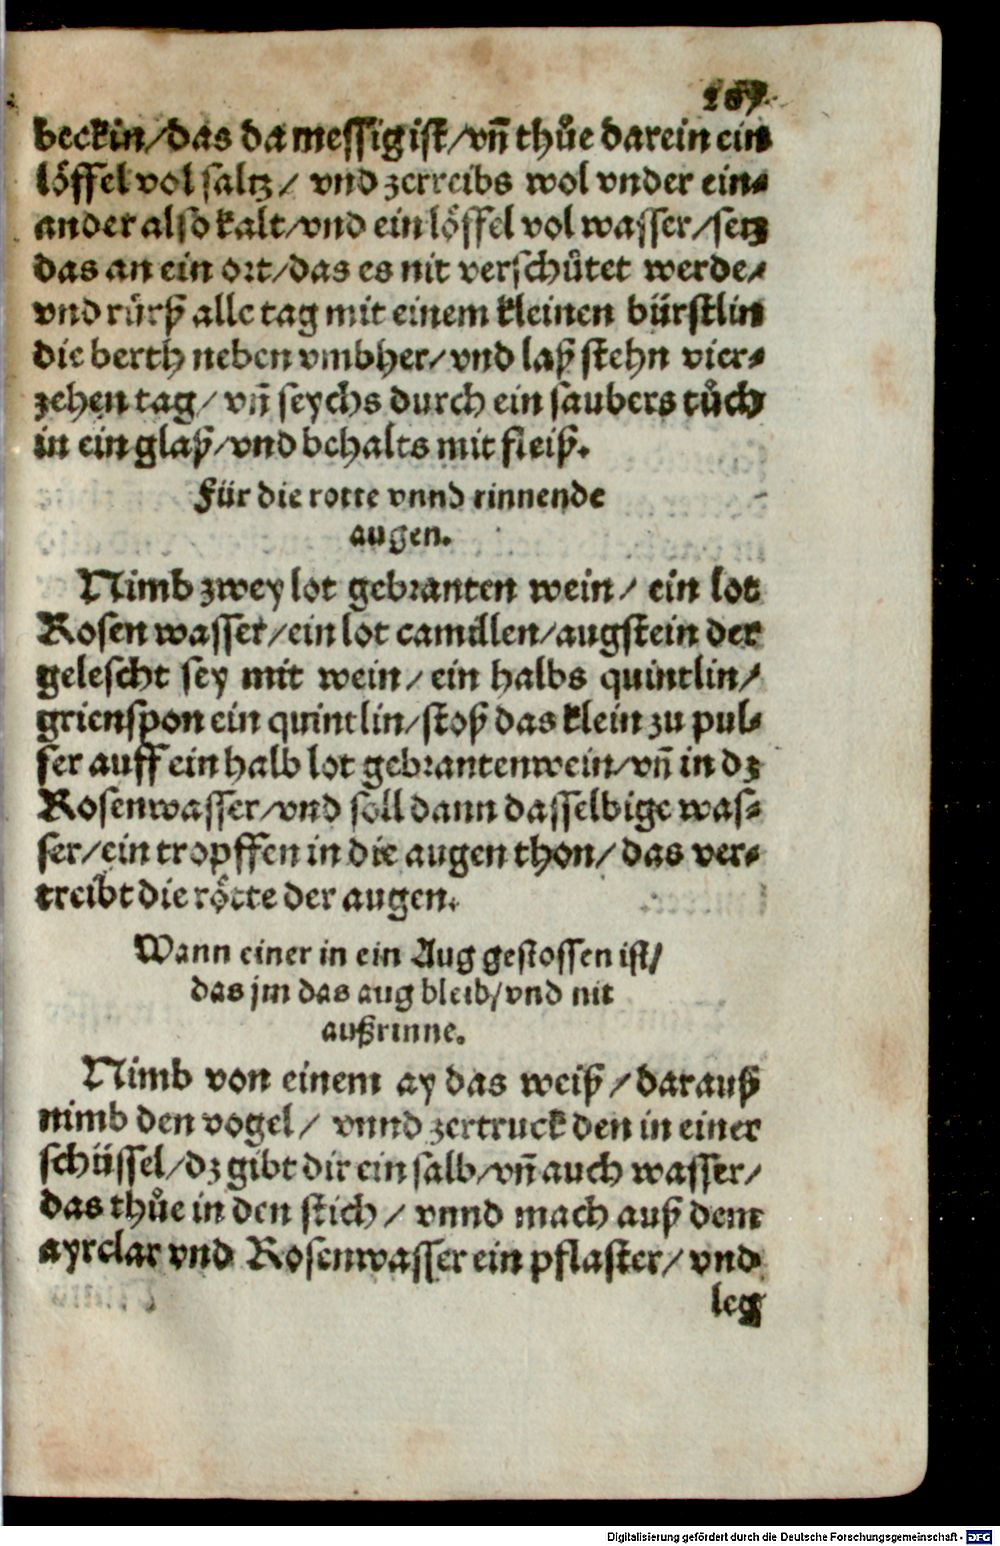 beckin/das da messig ist/vñ thůe darein ein
löffel vol saltz/ vnd zerreibs wol vnder ein⸗
ander also kalt/vnd ein löffel vol wasser/setz
das an ein ort/das es nit verschůtet werde/
vnd růrß alle tag mit einem kleinen bürstlin
die berth neben vmbher/vnd laß stehn vier⸗
zehen tag/ vñ seychs durch ein saubers tůch
in ein glaß/vnd behalts mit fleiß.
Für die rotte vnnd rinnende
augen.
Nimb zwey lot gebranten wein/ ein lot
Rosen wasser/ein lot camillen/augstein der
gelescht sey mit wein/ ein halbs quintlin/
grienspon ein quintlin/stoß das klein zu pul⸗
fer auff ein halb lot gebrantenwein/vñ in dz
Rosenwasser/vnd soll dann dasselbige was⸗
ser/ein tropffen in die augen thon/ das ver⸗
treibt die rötte der augen.
Wann einer in ein Aug gestossen ist/
das jm das aug bleib/vnd nit
außrinne.
Nimb von einem ay das weiß/darauß
nimb den vogel/ vnnd zertruck den in einer
schüssel/dz gibt dir ein salb/vñ auch wasser/
das thůe in den stich/ vnnd mach auß dem
ayrclar vnd Rosenwasser ein pflaster/ vnd
leg
Digitalisierung gefördert durch die Deutsche Forschungsgemeinschaft - DFG